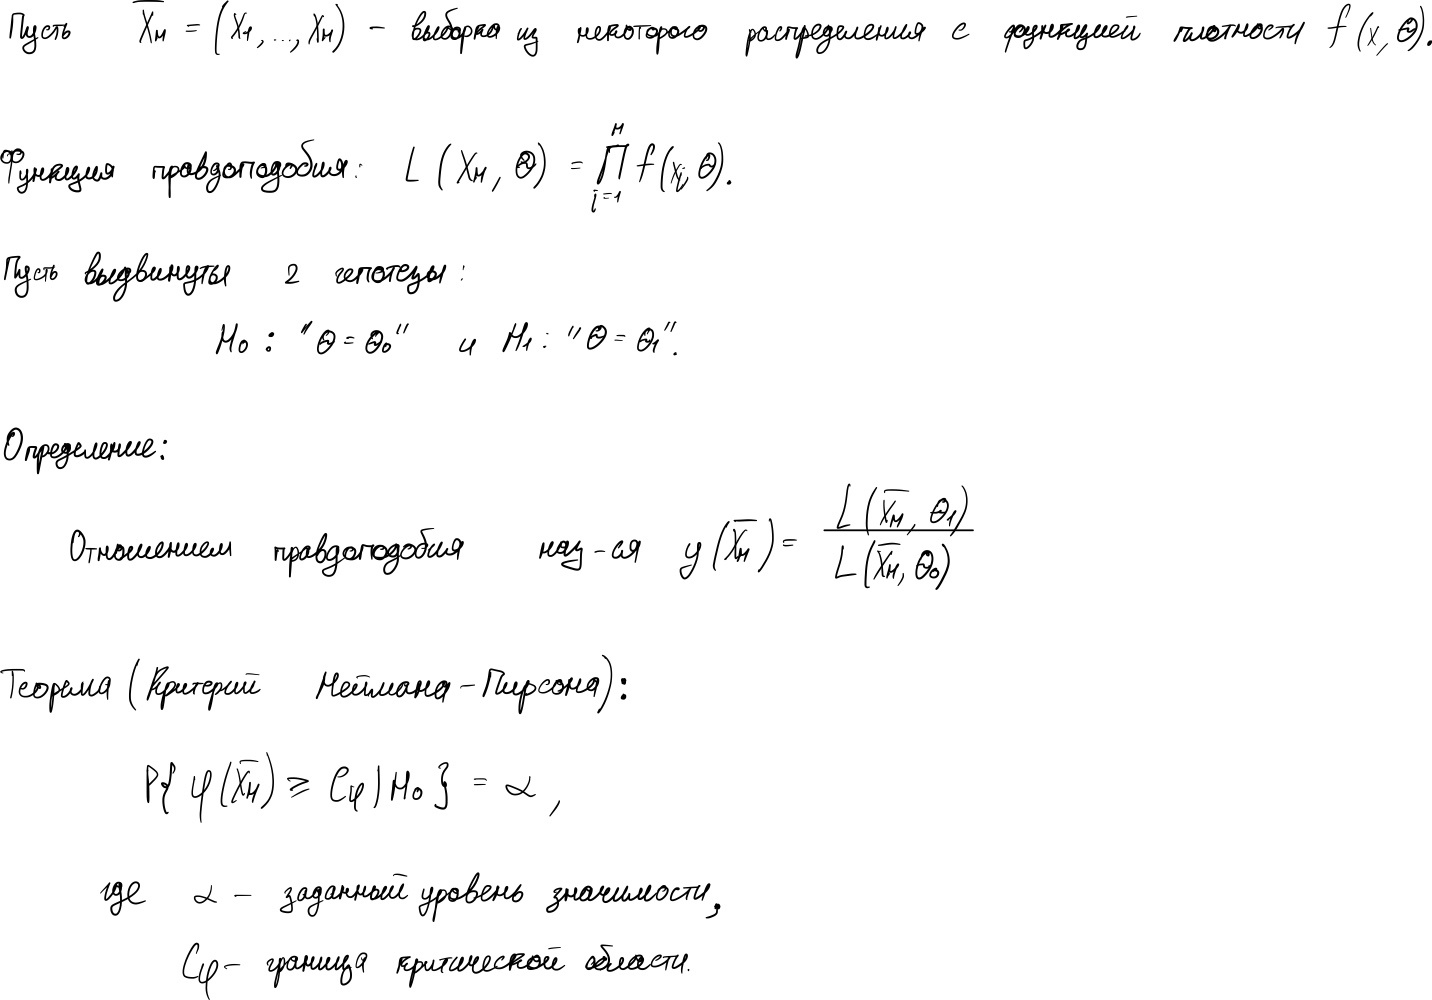 Пусть X̅ₙ = (X₁, ..., Xₙ) – выборка из некоторого распределения с функцией плотности f(x, Θ).
Функция правдоподобия: L(Xₙ, Θ) = ∏ⁿᵢ₌₁ f(xᵢ, Θ).
Пусть выдвинуты 2 гепотезы:
H₀: "Θ = Θ₀" и H₁: "Θ = Θ₁".
Определение:
Отношением правдоподобия наз-ся φ(X̅ₙ) = L(X̅ₙ, Θ₁) / L(X̅ₙ, Θ₀)
Теорема (Критерий Неймана-Пирсона):
P{ φ(X̅ₙ) ≥ Cφ | H₀ } = α,
где α – заданный уровень значимости,
Cφ – граница критической области.